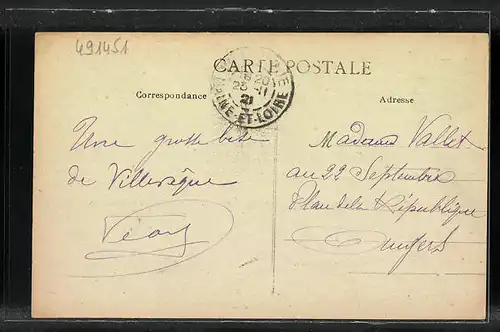 491451
CARTE POSTALE
18 20
23-11
21
MAINE-ET-LOIRE
Correspondance
Adresse
Une grosse bise
de Villevêque
Madame Vallet
au 22 Septembre
Place de la République
Angers